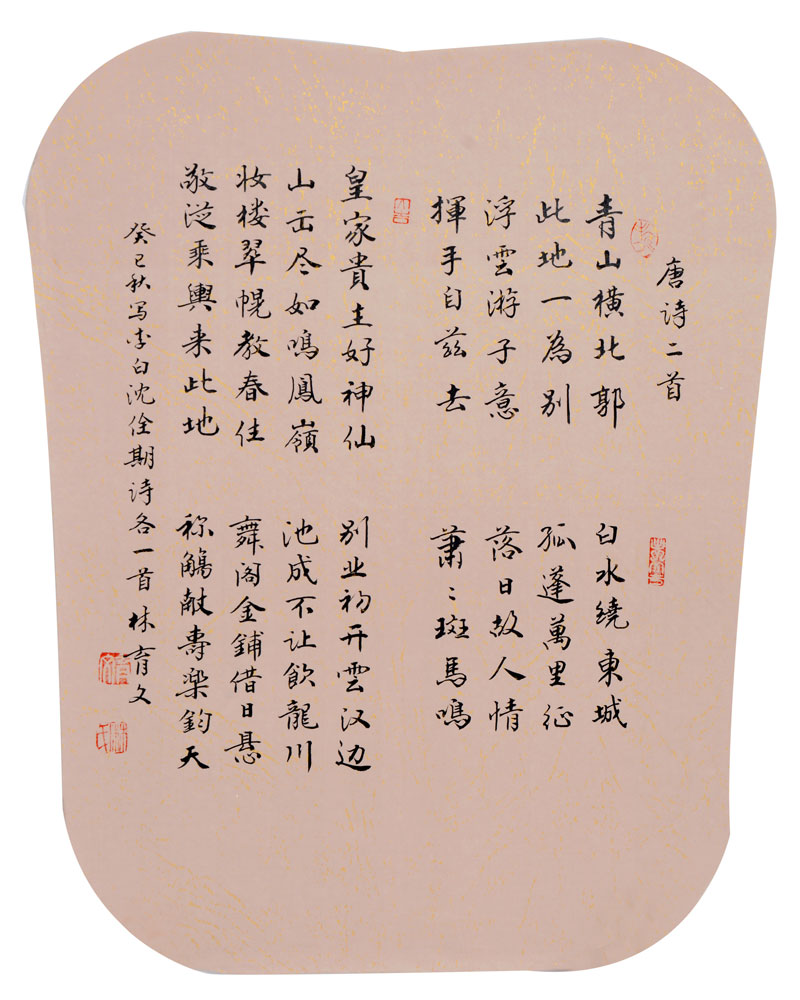 唐诗二首
青山横北郭
白水绕東城
此地一為别
孤蓬萬里征
浮雲游子意
落日故人情
揮手自兹去
萧〻斑馬鳴
皇家貴主好神仙
别业初开雲汉边
山出尽如鳴鳳嶺
池成不让飲龍川
妆楼翠幌教春住
舞阁金鋪借日悬
敬從乘輿来此地
称觴献壽樂鈞天
癸巳秋写李白沈佺期诗各一首林育文